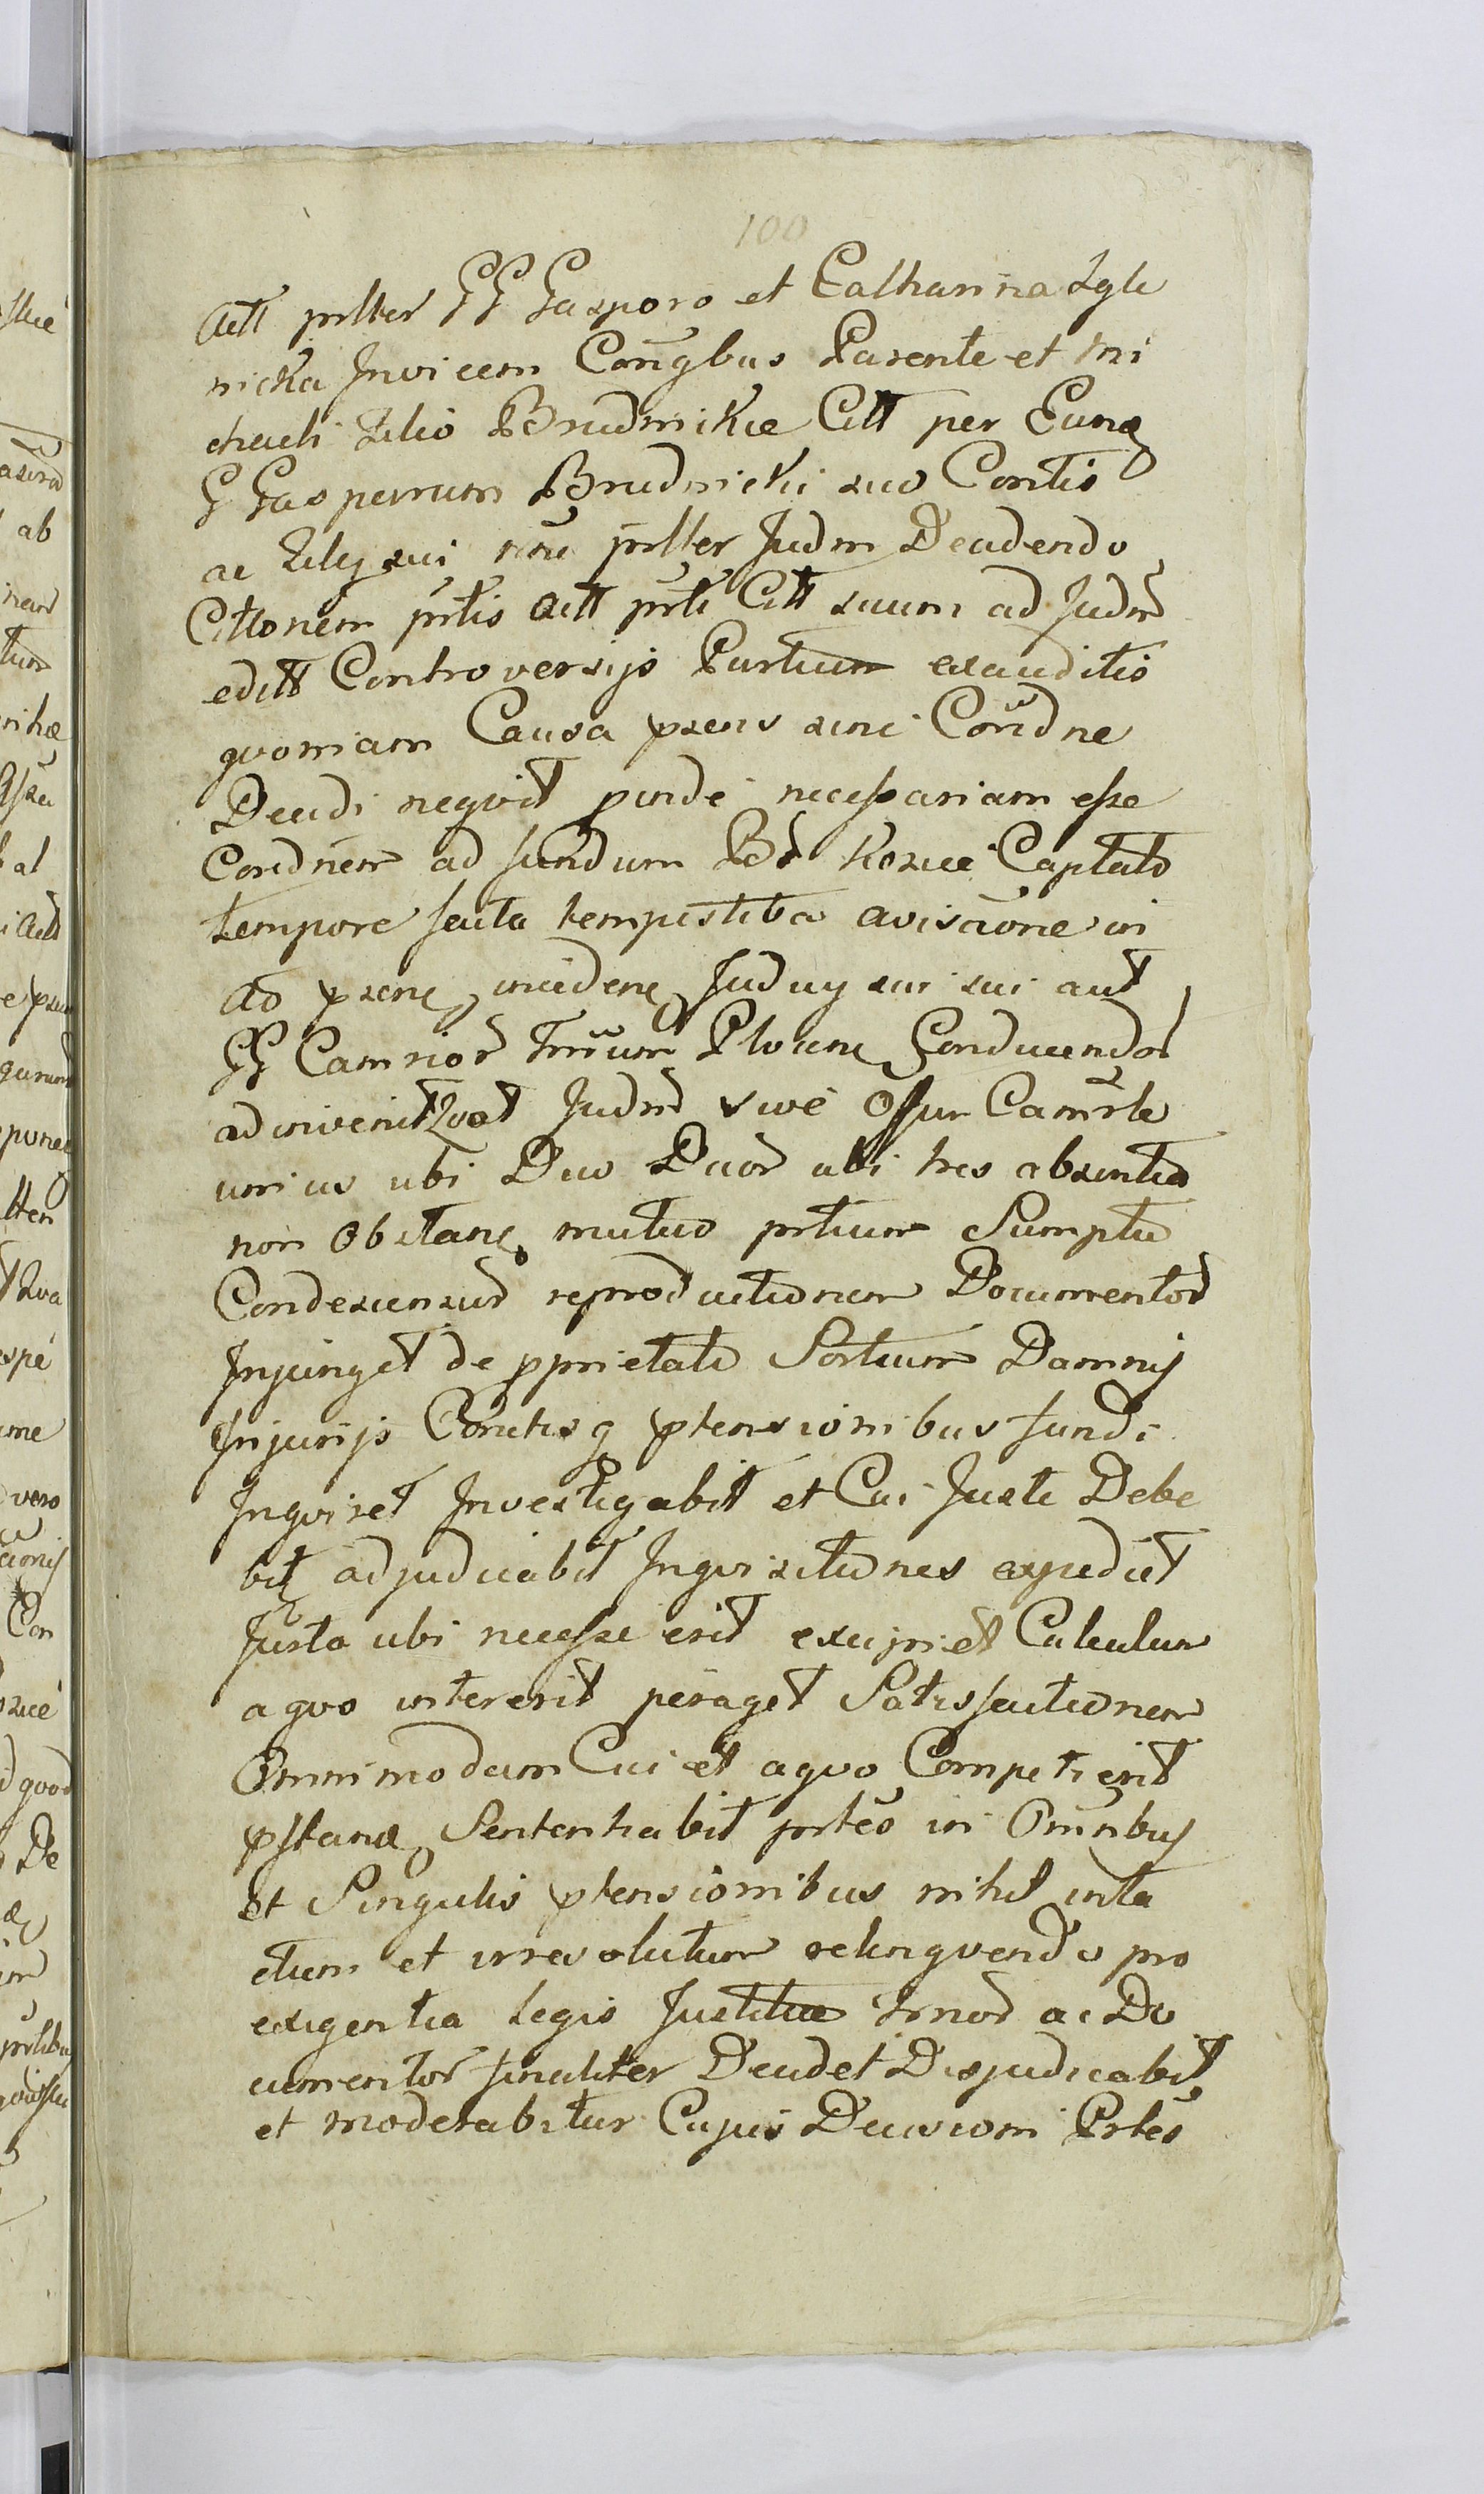 100
Actt prltter GG Gasporo et Catharina Zgle
nicka Invicem Conīgbus Parente et Mi
chaeli Filio Brudnikie Citt per Eunq
G Gasperum Brudnicki suo Contis
ac Filij sui nnē prltter Judm Decidendo
Cittonem prtis Actt prti Citt suum ad Judm
editt Controversijs Partium exauditis
qvoniam Causa pzens sine Condne
Decidi neqvit pinde necessariam esse
Condnem ad fundum Bd Kosue Captato
tempore facta tempestiva avisaōne in
ad pzenq incidenq Juduy sui sui aut
GG Camrior Trrium Plocen Conducendor
adinvenit Qvot Judm sive Offm Camrle
unius ubi Duo Duor ubi tres absentia
non Obstanq mutuo prtium Sumptu
Condescensur reproductionem Documentor
Injunget de pprietate Sortium Damnij
Injurijs Contisq ptensionibus fundi
Inqviret Investigabit et Cui Juste Debe
bit adjudicabit Inqvisitiones expediet
Jurta ubi necesse erit excipiet Calculum
a qvo intererit peraget Satisfactionem
Omnimodam Cui et a qvo Competierit
pstanq Sententiabit prtes in Omnibus
et Singulis ptensionibus nihil inta
ctum et irresolutum relinqvendo pro
exigentia Legis Justitiae Jrnor ac Do
cumentor finaliter Decidet Disjudicabit
et moderabitur Cujus Decisioni Prtes